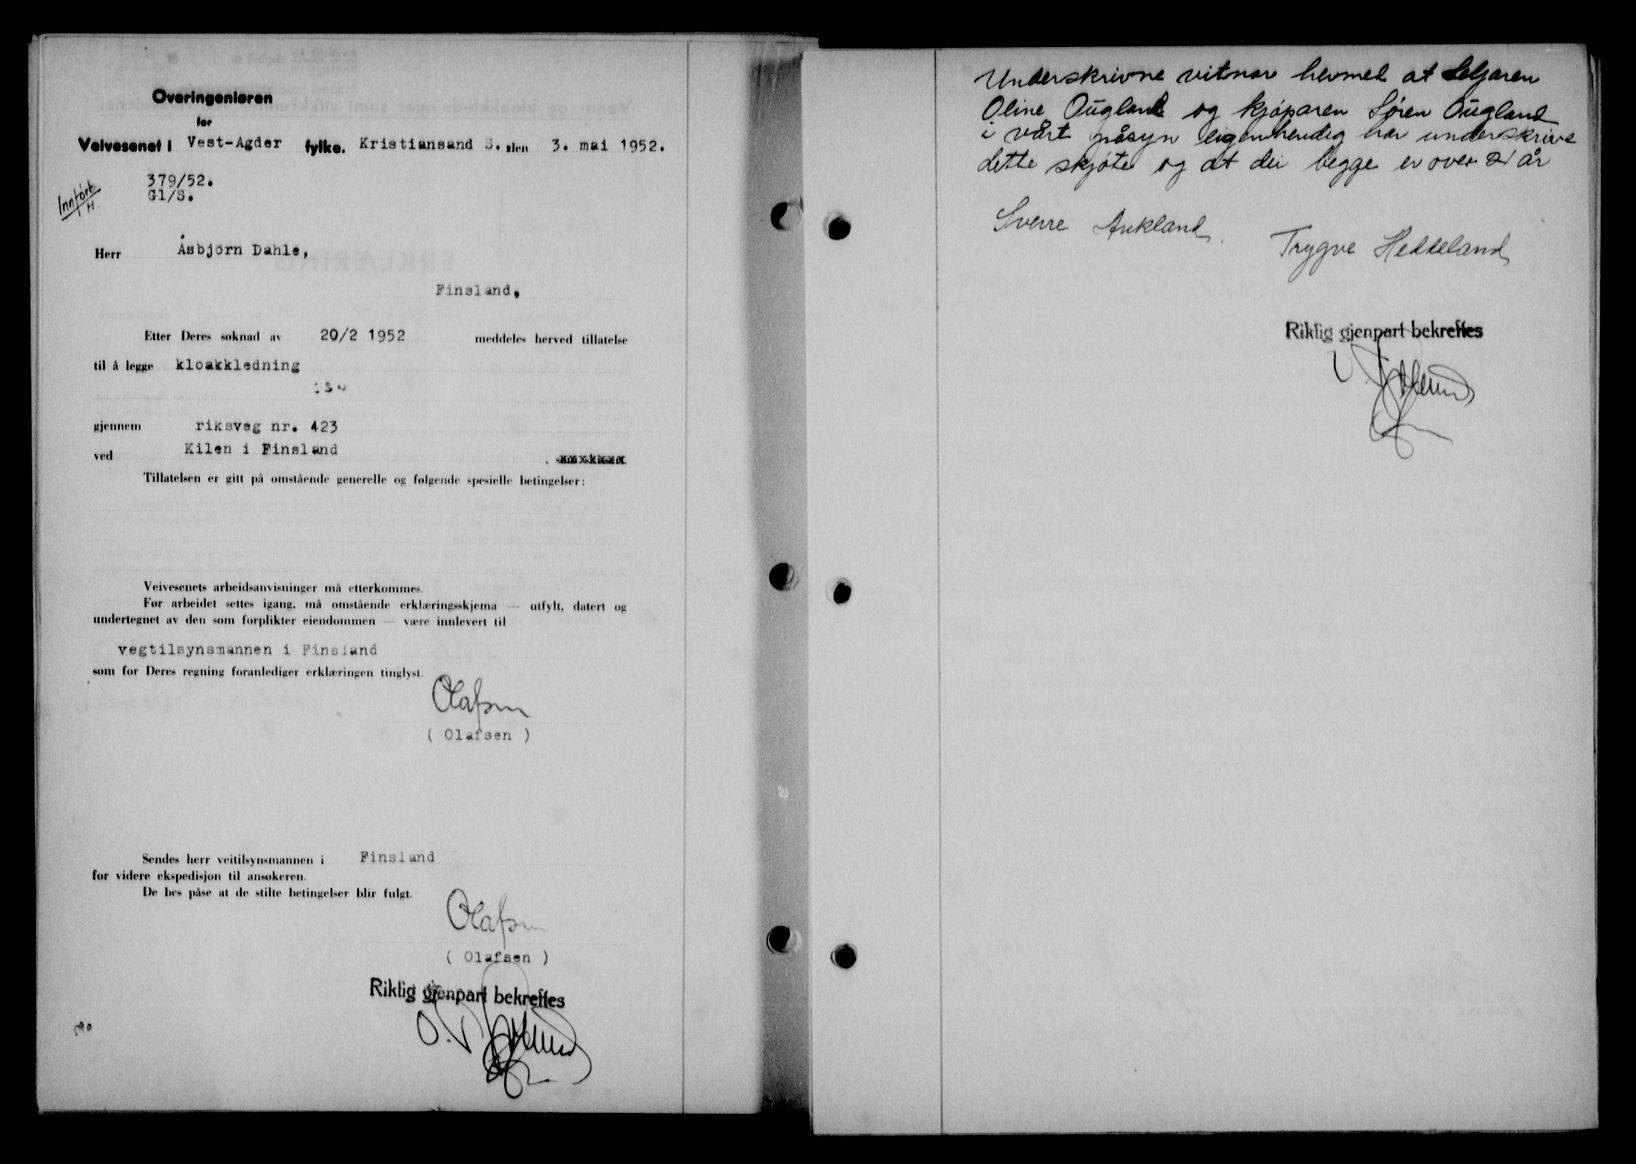 Overingeniøren
for
Veivesenet i Vest-Agder fylke. Kristiansand S. den 3. mai 1952.
379/52.
Gl/S.
Innført
Herr Åsbjörn Dahle,
Finsland.
Etter Deres søknad av 20/2 1952 meddeles herved tillatelse
til å legge kloakkledning
gjennem riksveg nr. 423
ved Kilen i Finsland
Tillatelsen er gitt på omstående generelle og følgende spesielle betingelser:
Veivesenets arbeidsanvisninger må etterkommes.
Før arbeidet settes igang, må omstående erklæringsskjema — utfylt, datert og
undertegnet av den som forplikter eiendommen — være innlevert til
vegtilsynsmannen i Finsland
som for Deres regning foranlediger erklæringen tinglyst.
Olafsen
( Olafsen )
Sendes herr veitilsynsmannen i Finsland
for videre ekspedisjon til ansøkeren.
De bes påse at de stilte betingelser blir fulgt.
Olafsen
( Olafsen )
Riktig gjenpart bekreftes
Underskrivne vitnar hermed at Seljaren
Oline Øugland og kjøparen Søren Øugland
i vårt påsyn eigenhendig har underskrive
dette skjøte og at dei begge er over 21 år
Sverre Aukland.
Trygve Heddeland
Riktig gjenpart bekreftes